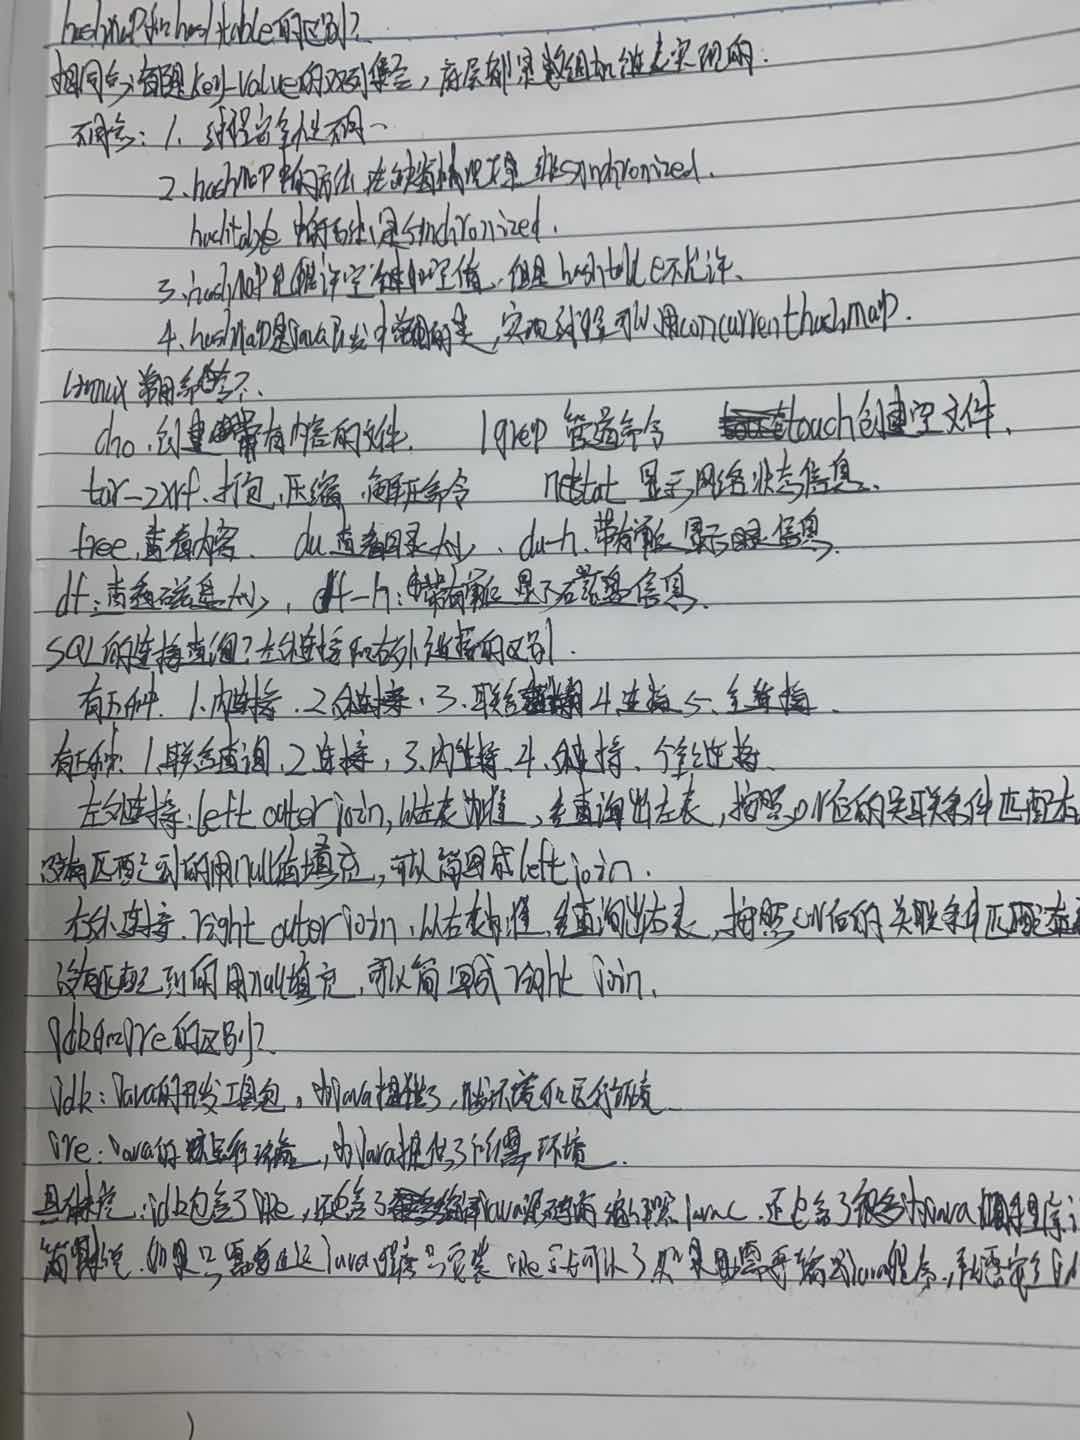 hashMap和hashtable的区别？
相同点：都是key-value的双列集合，底层都是数组加链表实现的.
不同点：1. 线程安全性不同.
2. hashMap中的方法 在缺省情况下是 非synchronized.
hashtable 中的方法是synchronized.
3. hashMap 允许空键和空值，但是hashtable不允许.
4. hashMap是Java开发中常用的类，实现线程可以用concurrenthashmap.
常用命令？
创建带有内容的文件. |grep 管道命令 touch创建空文件.
tar-zxvf. 打包，压缩，解压命令 netstat 显示网络状态信息.
tree. 查看内容. du 查看目录大小. du-h. 带有单位显示目录信息.
df：查看磁盘大小，df-h：带有单位显示磁盘信息.
SQL的连接查询？左外连接和右外连接的区别.
有五种. 1.内连接. 2 外连接. 3. 联合 4.连接 5. 全连接.
有五种. 1.联合查询. 2 连接. 3. 内连接. 4. 外连接. 全连接.
左外连接：left outer join, 以左表为准，全查询出左表，按照on后的关联条件匹配右
没有匹配到的用null值填充，可以简写成left join.
右外连接. right outer join. 以右表为准，全查询出右表，按照on后的关联条件匹配左
没有匹配到的用null填充，可以简写成 right join.
jdk和jre的区别？
jdk：Java的开发工具包，为java提供了 环境和运行环境
jre：Java的 运行环境，为Java提供了所需环境.
具体来说：jdk包含了jre，还包含了 java源码的 编译器javac. 还包含了很多 java
简单来说. 如果只需要运行Java程序只安装jre就可以了 如果需要编写java程序，